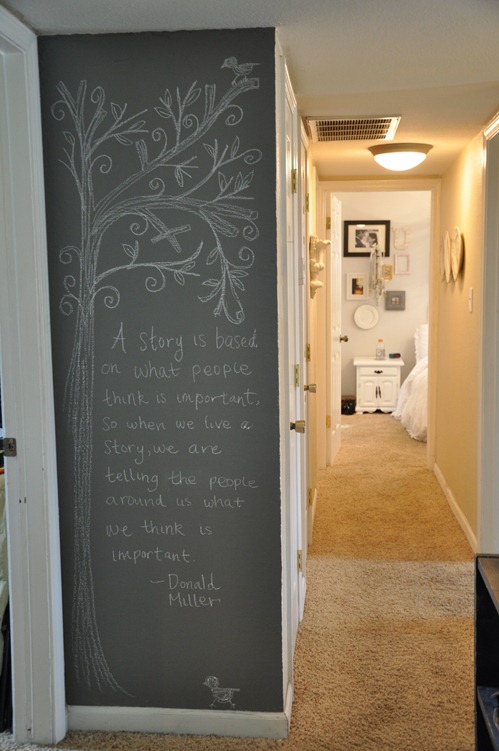 A Story is based
on what people
think is important,
so when we live a
Story, we are
telling the people
around us what
we think is
important.
- Donald
Miller